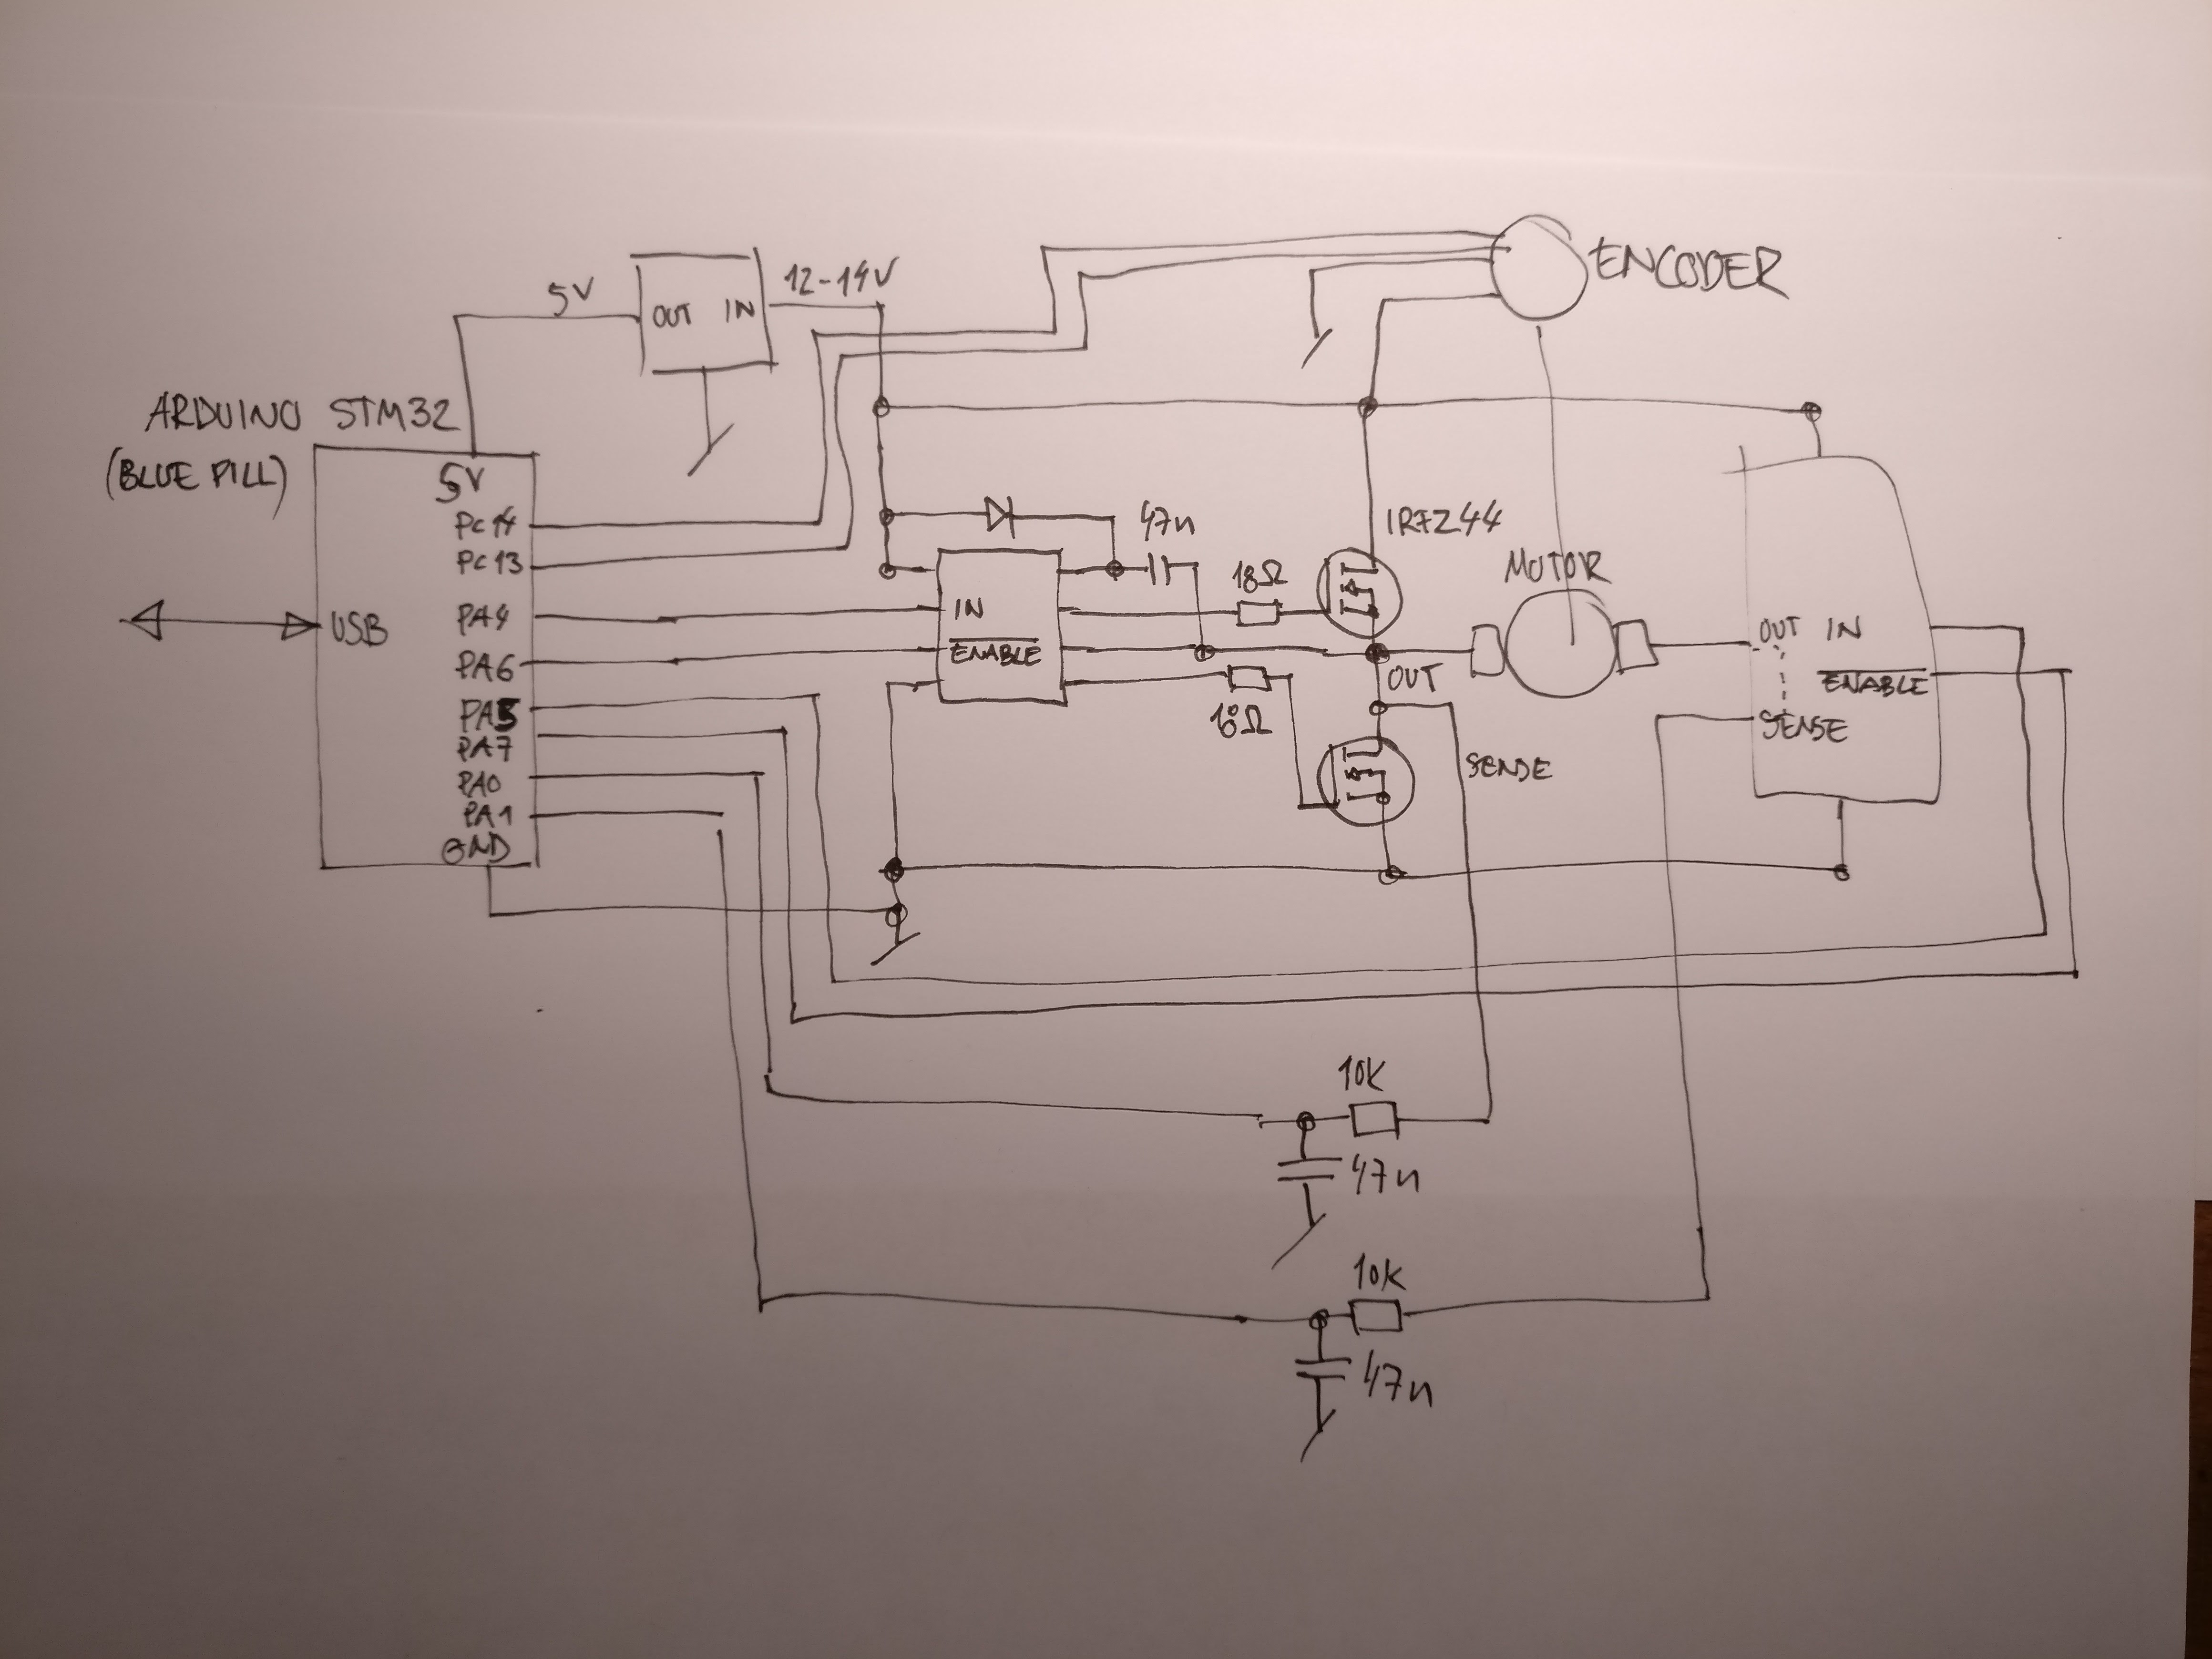 ENCODER
12-14V
5V
OUT IN
ARDUINO STM32
(BLUE PILL)
5V
PC14
PC13
PA4
USB
PA6
PA5
PA7
PA0
PA1
GND
47n
IRFZ44
18Ω
IN
ENABLE
MOTOR
OUT
18Ω
SENSE
OUT IN
ENABLE
SENSE
10K
47n
10K
47n